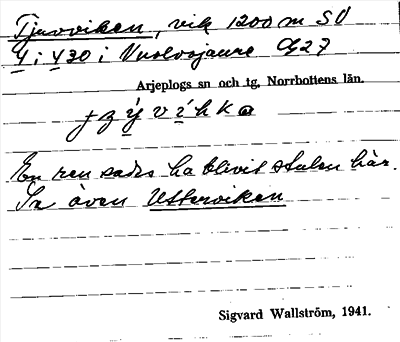 Tjuvviken, vik 1200 m SV
Y i Y30 i Vuolvojaure G27
Arjeplogs sn och tg, Norrbottens län.
En ren sades ha blivit stulen här.
Se även Utterviken
Sigvard Wallström, 1941.